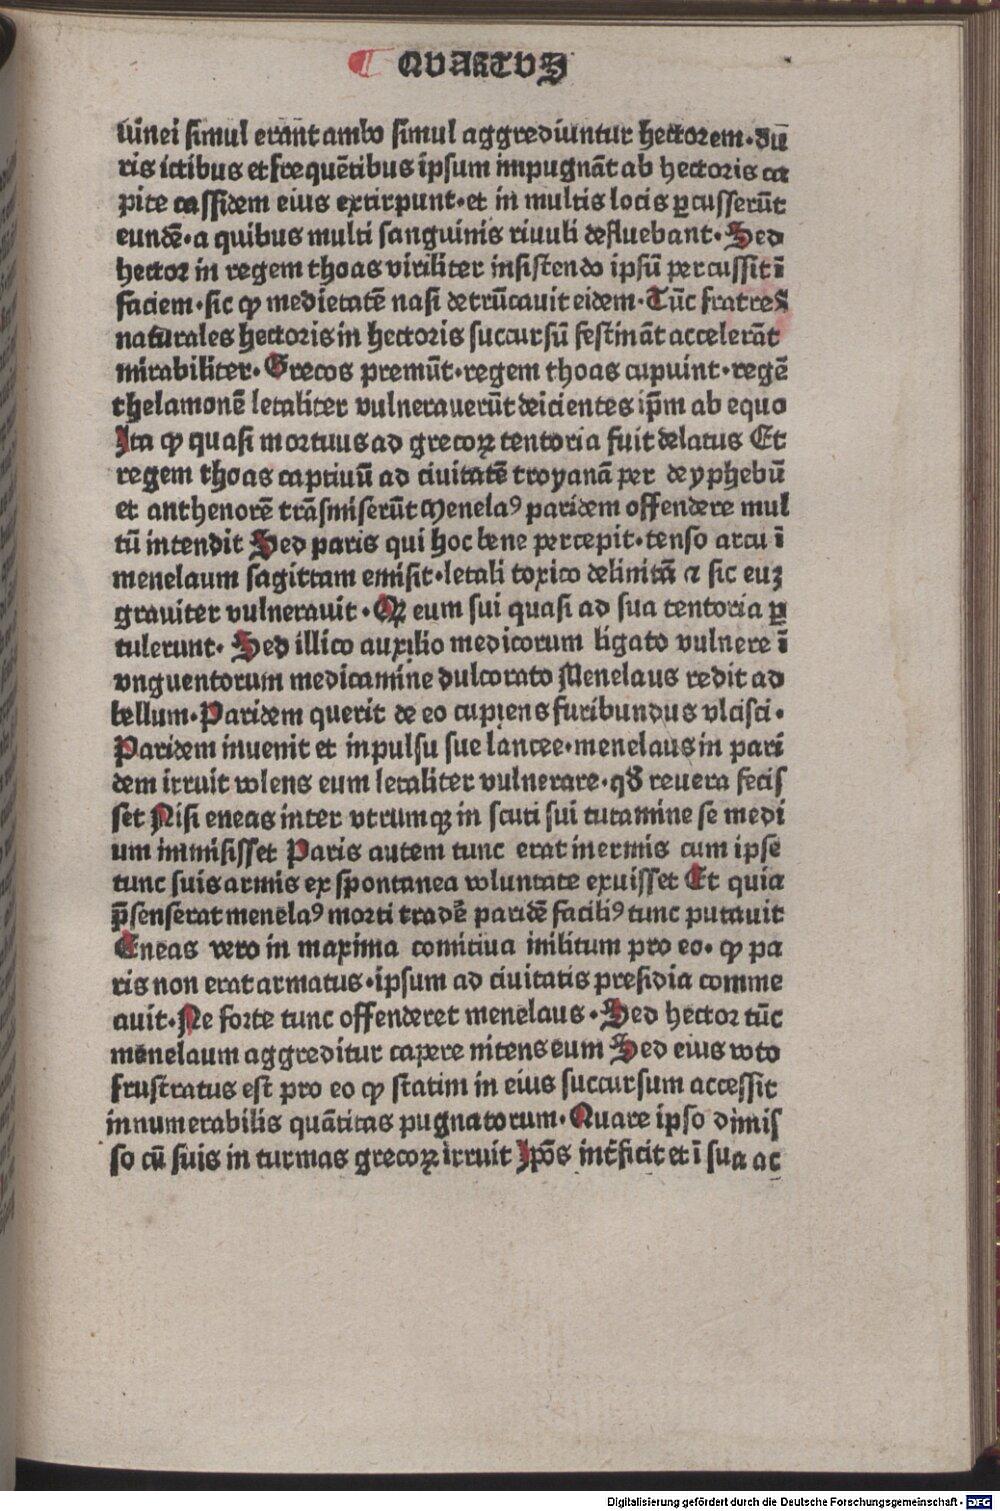 ¶ QVARTVS
uinei simul erant ambo simul aggrediuntur hectorem·dū
ris ictibus et frequētibus ipsum impugnāt ab hectoris ca
pite cassidem eius extirpunt·et in multis locis ꝑcusserūt
eundē·a quibus multi sanguinis riuuli defluebant·Sed
hector in regem thoas viriliter insistendo ipsū percussit ī
faciem·sic ꝙ medietatē nasi detrūcauit eidem·Tūc fratres
naturales hectoris in hectoris succursū festināt accelerāt
mirabiliter·Grecos premūt·regem thoas cupuint·regē
thelamonē letaliter vulnerauerūt deicientes ip̄m ab equo
Ita ꝙ quasi mortuus ad grecoꝝ tentoria fuit delatus Et
regem thoas captiuū ad ciuitatē troyanā per deyphebū
et anthenorē trāsmiserūt Menelaꝰ paridem offendere mul
tū intendit Sed paris qui hoc bene percepit·tenso arcu ī
menelaum sagittam emisit·letali toxico delinitā ⁊ sic euꝫ
grauiter vulnerauit·Qꝫ eum sui quasi ad sua tentoria ꝑ
tulerunt·Sed illico auxilio medicorum ligato vulnere ī
vnguentorum medicamine dulcorato Menelaus redit ad
bellum·Paridem querit de eo cupiens furibundus vlcisci·
Paridem inuenit et inpulsu sue lancee·menelaus in pari
dem irruit volens eum letaliter vulnerare·qđ reuera fecis
set Nisi eneas inter vtrumqꝫ in scuti sui tutamine se medi
um immisisset Paris autem tunc erat inermis cum ipse
tunc suis armis ex spontanea voluntate exuisset Et quia
p̄senserat menelaꝰ morti tradē paridē faciliꝰ tunc putauit
Eneas vero in maxima comitiua militum pro eo·ꝙ pa
ris non erat armatus·ipsum ad ciuitatis presidia comme
auit·Ne forte tunc offenderet menelaus·Sed hector tūc
menelaum aggreditur capere nitens eum Sed eius voto
frustratus est pro eo ꝙ statim in eius succursum accessit
innumerabilis quātitas pugnatorum·Quare ipso dimis
so cū suis in turmas grecoꝝ irruit Ipōs int̄ficit et ī sua ac
Digitalisierung gefördert durch die Deutsche Forschungsgemeinschaft - DFG